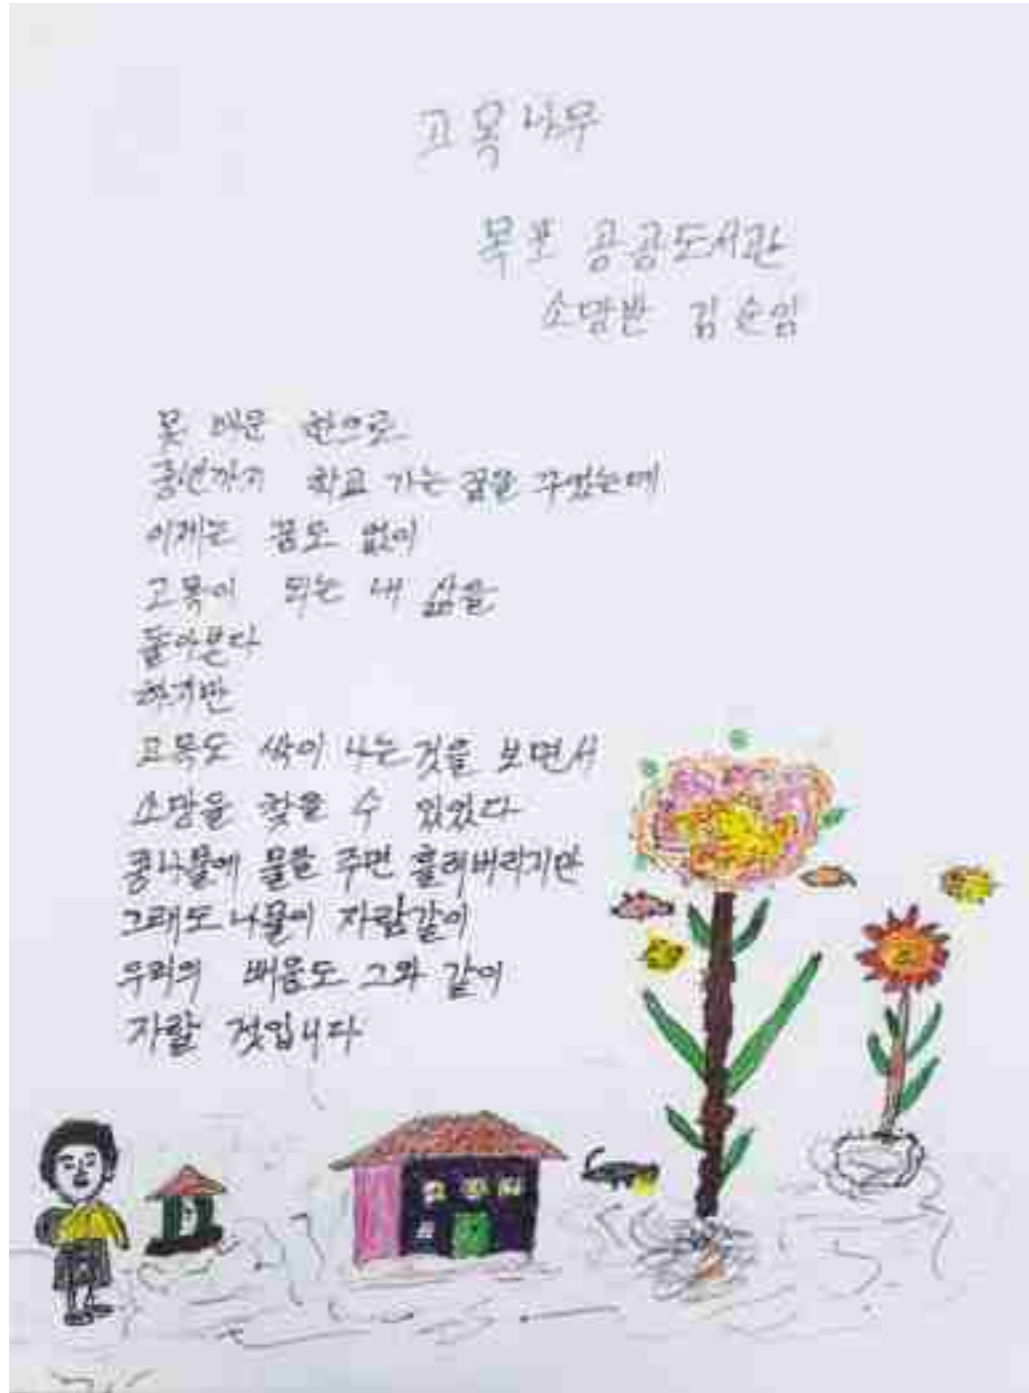 고목나무
목포 공공도서관
소망반 김순임
못 배운 한으로
중년까지 학교 가는 꿈을 꾸었는데
이제는 꿈도 없이
고목이 되는 내 삶을
돌아본다
하지만
고목도 싹이 나는것을 보면서
소망을 찾을 수 있었다
콩나물에 물을 주면 흘러버리지만
그래도 나물이 자람같이
우리의 배움도 그와 같이
자랄 것입니다